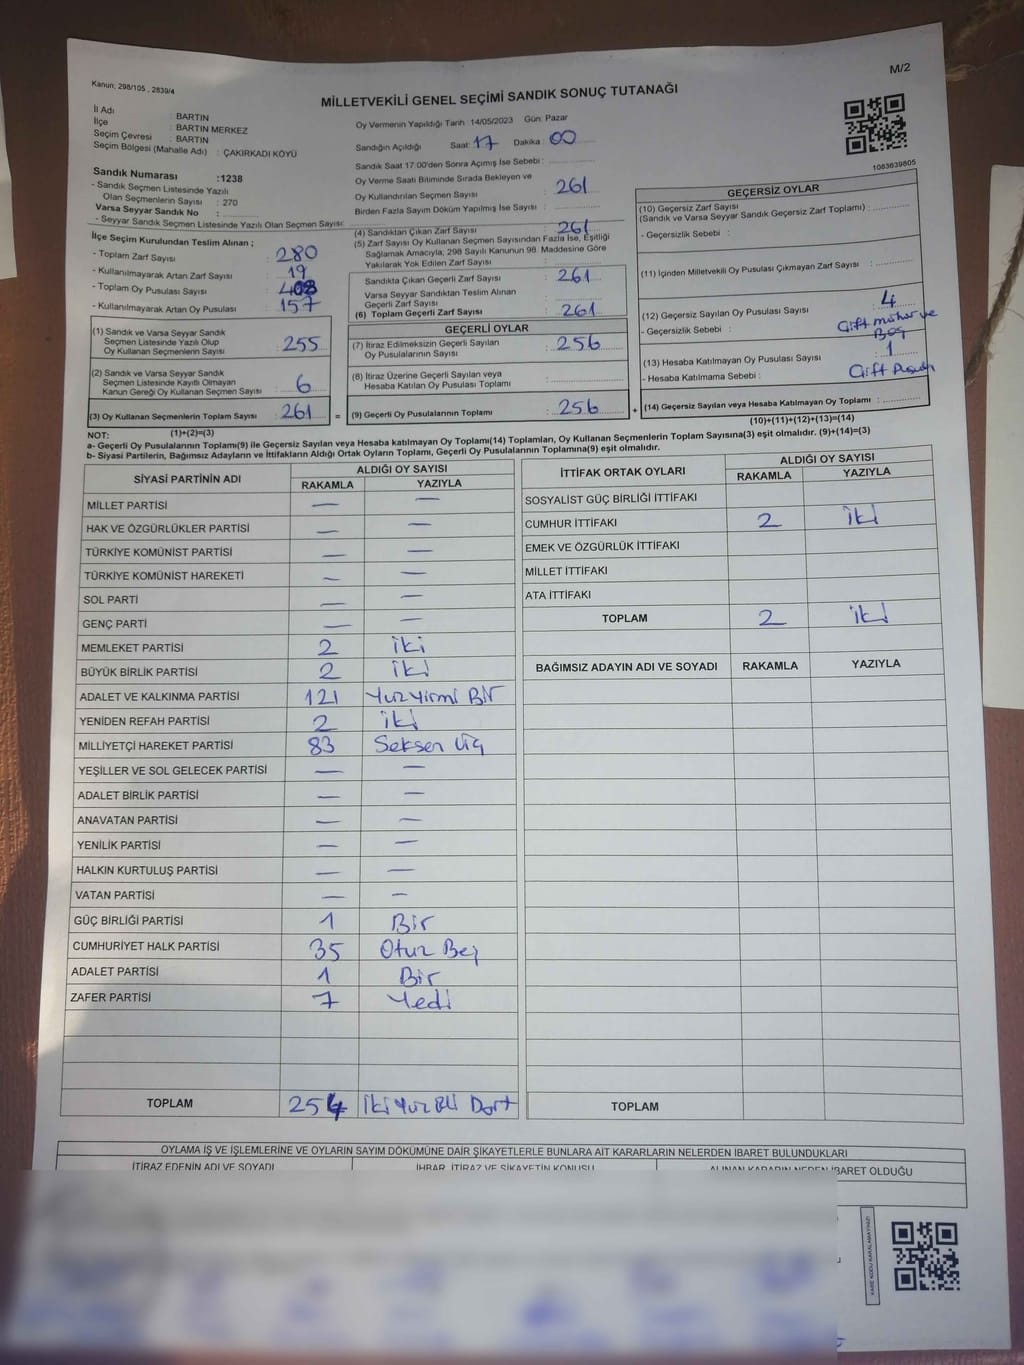 Kanun; 298/105 , 2839/4
M/2
MİLLETVEKİLİ GENEL SEÇİMİ SANDIK SONUÇ TUTANAĞI
İl Adı : BARTIN
İlçe : BARTIN MERKEZ
Seçim Çevresi : BARTIN
Seçim Bölgesi (Mahalle Adı) : ÇAKIRKADI KÖYÜ
Sandık Numarası :1238
- Sandık Seçmen Listesinde Yazılı
Olan Seçmenlerin Sayısı : 270
Varsa Seyyar Sandık No :
- Seyyar Sandık Seçmen Listesinde Yazılı Olan Seçmen Sayısı:
İlçe Seçim Kurulundan Teslim Alınan ;
- Toplam Zarf Sayısı : 280
- Kullanılmayarak Artan Zarf Sayısı : 19
- Toplam Oy Pusulası Sayısı :
- Kullanılmayarak Artan Oy Pusulası : 157
(1) Sandık ve Varsa Seyyar Sandık
Seçmen Listesinde Yazılı Olup
Oy Kullanan Seçmenlerin Sayısı : 255
(2) Sandık ve Varsa Seyyar Sandık
Seçmen Listesinde Kayıtlı Olmayan
Kanun Gereği Oy Kullanan Seçmen Sayısı : 6
(3) Oy Kullanan Seçmenlerin Toplam Sayısı : 261 =
(1)+(2)=(3)
Oy Vermenin Yapıldığı Tarih :14/05/2023 Gün: Pazar
Sandığın Açıldığı Saat: 17 Dakika : 00
Sandık Saat 17:00'den Sonra Açımış İse Sebebi :
Oy Verme Saati Bitiminde Sırada Bekleyen ve
Oy Kullandırılan Seçmen Sayısı : 261
Birden Fazla Sayım Döküm Yapılmış İse Sayısı :
(4) Sandıktan Çıkan Zarf Sayısı : 261
(5) Zarf Sayısı Oy Kullanan Seçmen Sayısından Fazla İse, Eşitliği
Sağlamak Amacıyla; 298 Sayılı Kanunun 98. Maddesine Göre
Yakılarak Yok Edilen Zarf Sayısı :
Sandıkta Çıkan Geçerli Zarf Sayısı : 261
Varsa Seyyar Sandıktan Teslim Alınan
Geçerli Zarf Sayısı :
(6) Toplam Geçerli Zarf Sayısı : 261
GEÇERLİ OYLAR
(7) İtiraz Edilmeksizin Geçerli Sayılan
Oy Pusulalarının Sayısı : 256
(8) İtiraz Üzerine Geçerli Sayılan veya
Hesaba Katılan Oy Pusulası Toplamı :
(9) Geçerli Oy Pusulalarının Toplamı : 256 +
1083639805
GEÇERSİZ OYLAR
(10) Geçersiz Zarf Sayısı
(Sandık ve Varsa Seyyar Sandık Geçersiz Zarf Toplamı) :
- Geçersizlik Sebebi :
(11) İçinden Milletvekili Oy Pusulası Çıkmayan Zarf Sayısı :
(12) Geçersiz Sayılan Oy Pusulası Sayısı : 4
- Geçersizlik Sebebi : Çift mühür ve
Boş
(13) Hesaba Katılmayan Oy Pusulası Sayısı : 1
- Hesaba Katılmama Sebebi : Çift Pusula
(14) Geçersiz Sayılan veya Hesaba Katılmayan Oy Toplamı :
(10)+(11)+(12)+(13)=(14)
NOT:
a- Geçerli Oy Pusulalarının Toplamı(9) ile Geçersiz Sayılan veya Hesaba katılmayan Oy Toplamı(14) Toplamları, Oy Kullanan Seçmenlerin Toplam Sayısına(3) eşit olmalıdır. (9)+(14)=(3)
b- Siyasi Partilerin, Bağımsız Adayların ve İttifakların Aldığı Ortak Oyların Toplamı, Geçerli Oy Pusulalarının Toplamına(9) eşit olmalıdır.
SİYASİ PARTİNİN ADI ALDIĞI OY SAYISI
RAKAMLA YAZIYLA
MİLLET PARTİSİ — —
HAK VE ÖZGÜRLÜKLER PARTİSİ — —
TÜRKİYE KOMÜNİST PARTİSİ — —
TÜRKİYE KOMÜNİST HAREKETİ — —
SOL PARTİ — —
GENÇ PARTİ — —
MEMLEKET PARTİSİ 2 iki
BÜYÜK BİRLİK PARTİSİ 2 iki
ADALET VE KALKINMA PARTİSİ 121 Yüz Yirmi Bir
YENİDEN REFAH PARTİSİ 2 iki
MİLLİYETÇİ HAREKET PARTİSİ 83 Seksen Üç
YEŞİLLER VE SOL GELECEK PARTİSİ — —
ADALET BİRLİK PARTİSİ — —
ANAVATAN PARTİSİ — —
YENİLİK PARTİSİ — —
HALKIN KURTULUŞ PARTİSİ — —
VATAN PARTİSİ — —
GÜÇ BİRLİĞİ PARTİSİ 1 Bir
CUMHURİYET HALK PARTİSİ 35 Otuz Beş
ADALET PARTİSİ 1 Bir
ZAFER PARTİSİ 7 Yedi
TOPLAM 254 İki Yüz Elli Dört
İTTİFAK ORTAK OYLARI ALDIĞI OY SAYISI
RAKAMLA YAZIYLA
SOSYALİST GÜÇ BİRLİĞİ İTTİFAKI
CUMHUR İTTİFAKI 2 iki
EMEK VE ÖZGÜRLÜK İTTİFAKI
MİLLET İTTİFAKI
ATA İTTİFAKI
TOPLAM 2 iki
BAĞIMSIZ ADAYIN ADI VE SOYADI RAKAMLA YAZIYLA
TOPLAM
OYLAMA İŞ VE İŞLEMLERİNE VE OYLARIN SAYIM DÖKÜMÜNE DAİR ŞİKAYETLERLE BUNLARA AİT KARARLARIN NELERDEN İBARET BULUNDUKLARI
İTİRAZ EDENİN ADI VE SOYADI İHBAR, İTİRAZ VE ŞİKAYETİN KONUSU ALINAN KARARIN NEDEN İBARET OLDUĞU
KARE KODU KARALAMAYINIZ!